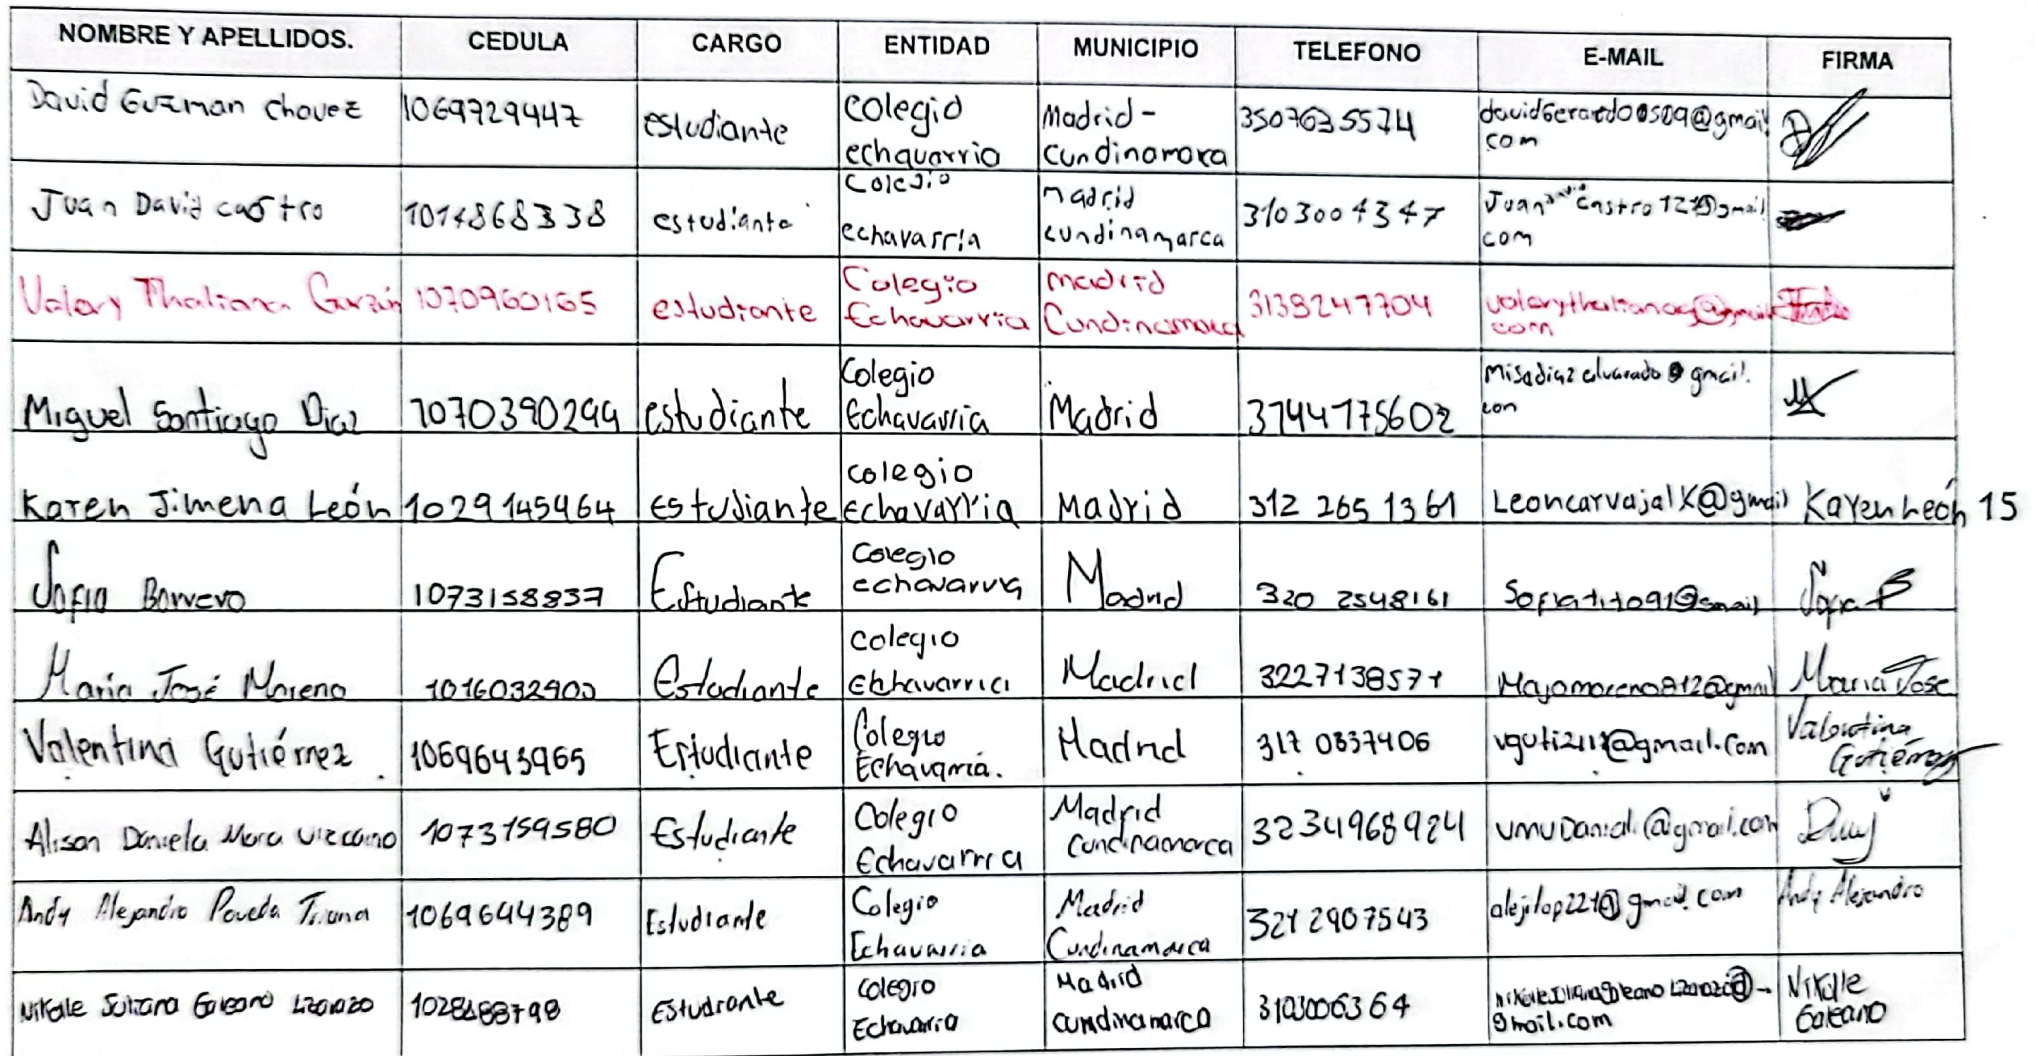 NOMBRE Y APELLIDOS. CEDULA CARGO ENTIDAD MUNICIPIO TELEFONO E-MAIL FIRMA
David Guzman chavez 1069729447 estudiante colegio echavarria Madrid - cundinamarca 3507635574 davidGerardo00509@gmail com
Juan David castro 1014868338 estudiante colegio echavarria madrid cundinamarca 3103004347 com
Valery Thaliana Garzón 1070960165 estudiante Colegio Echavarria madrid Cundinamarca 3138247704 valerythalianag@gmail com
Miguel Santiago Diaz 1070390299 estudiante Colegio Echavarria Madrid 3144175602 misadiazalvarado@gmail. com
Karen Jimena León 1029145464 estudiante colegio Echavarria Madrid 312 265 1361 LeoncarvajalK@gmail Karen León 15
Sofia Barrero 1073158837 Estudiante colegio echavarria Madrid 320 2548161 Sofiatito91@gmail Sofia B
Maria José Moreno 1016032900 Estudiante colegio Echavarria Madrid 3227138571 Majomoreno812@gmail Maria Jose
Valentina Gutiérrez. 1069643965 Estudiante Colegio Echavarria. Madrid 317 0837406 @gmail.com Valentina Gutiérrez
Alison Daniela Mora vizcaino 1073159580 Estudiante Colegio Echavarria Madrid Cundinamarca 3234968924 @gmail.com
Andy Alejandro Poveda Triana 1069644389 Estudiante Colegio Echavarria Madrid Cundinamarca 3212907543 alejilop221@gmail.com Andy Alejandro
Nikolle Juliana Galeano Lizarazo Estudiante colegio Echavarria Madrid cundinamarca 3103006364 gmail.com Nikolle Galeano